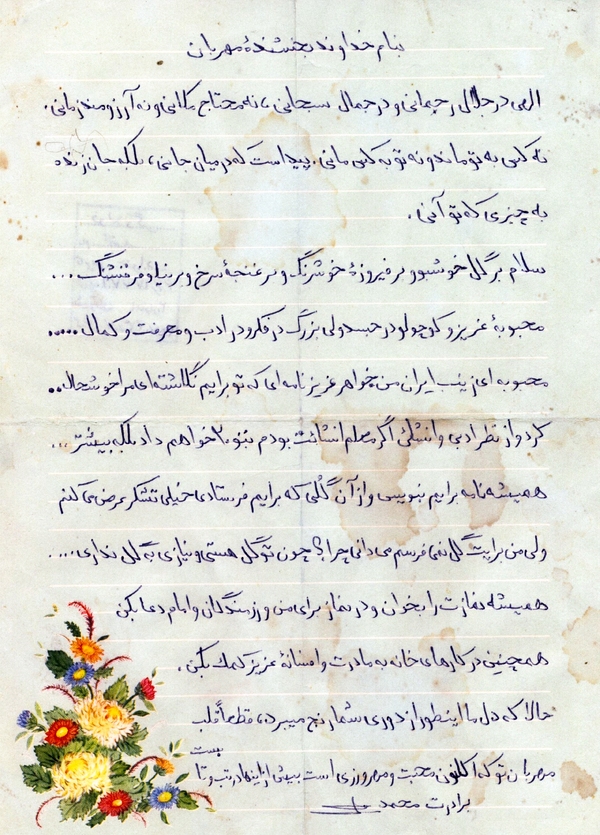 بنام خداوند بخشندهٔ مهربان
الهی در جلال رحمانی و در جمال سبحانی، نه محتاج مکانی و نه آرزومند زمانی.
نه کس به تو ماند و نه تو به کس مانی. پیداست که در میان جانی، بلکه جان زنده
به چیزی که تو آنی.
سلام بر گل خوشبو و بر فیروزهٔ خوشرنگ و بر غنچهٔ سرخ و بر نیلوفر قشنگ ...
محبوبهٔ عزیز و کوچولو در جسد ولی بزرگ در فکر و در ادب و معرفت و کمال .....
محبوبه ای زینب ایران من خواهر عزیز نامه ای که تو برایم نگاشته ای مرا خوشحال..
کرد و از نظر ادبی و انشائی اگر معلم انشائت بودم بتو ۲۰ خواهم داد بلکه بیشتر ...
همیشه نامه برایم بنویس و از آن گلی که برایم فرستادی خیلی تشکر عرض می کنم
ولی من برایت گل نمی فرستم می دانی چرا؟ چون تو گل هستی و نیازی به گل نداری ....
همیشه نمازت را بخوان و در نماز برای من و رزمندگان و امام دعا بکن
همچنین در کارهای خانه به مادرت و افسانهٔ عزیز کمک بکن.
حالا که دل ما اینطور از دوری شما رنج میبرد، قطعاً قلب
مهربان تو که اکنون محبت و مهرورزی است بیش از اینها در تب و تا
بست
برادرت محمد